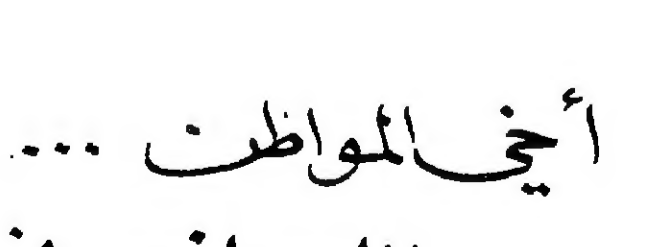 أخي المواطن ...